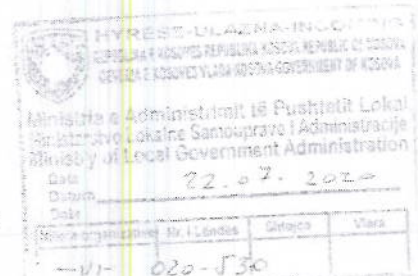 HYRËSE-ULAZNA-INCOMING
REPUBLIKA E KOSOVËS REPUBLIKA KOSOVA REPUBLIC OF KOSOVA
QEVERIA E KOSOVËS VLADA KOSOVA GOVERNMENT OF KOSOVA
Ministria e Administrimit të Pushtetit Lokal
Ministarstvo Lokalne Samouprave i Administracije
Ministry of Local Government Administration
Data
Datum
Date
22.07.2020
Nr. i Lëndës
-VI- 020-530